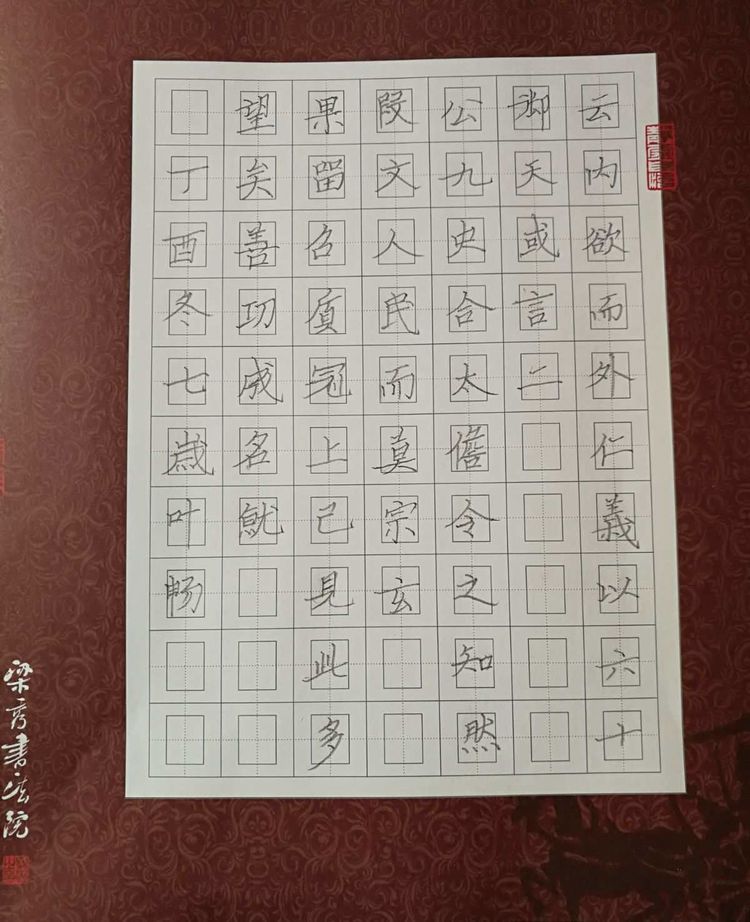 云内欲而外仁義以六十
御天或言二
公九史合太儋令之知然
段文人民而莫宗玄
果留召質冠上己見此多
望矣善功成名就
丁酉冬七歲叶畅
梁秀書法院